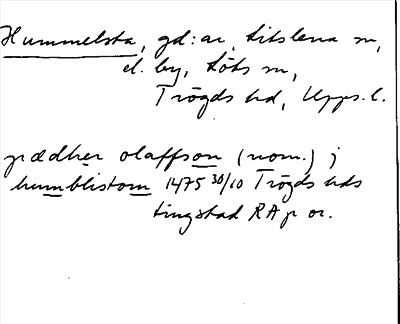 Hummelsta, gd:ar, Litslena sn,
el. by, Löts sn,
Trögds hd, Upps. l.
pædher olaffson (nom.) j
humblistom 1475 30/10 Trögds hds
tingstad RA p or.